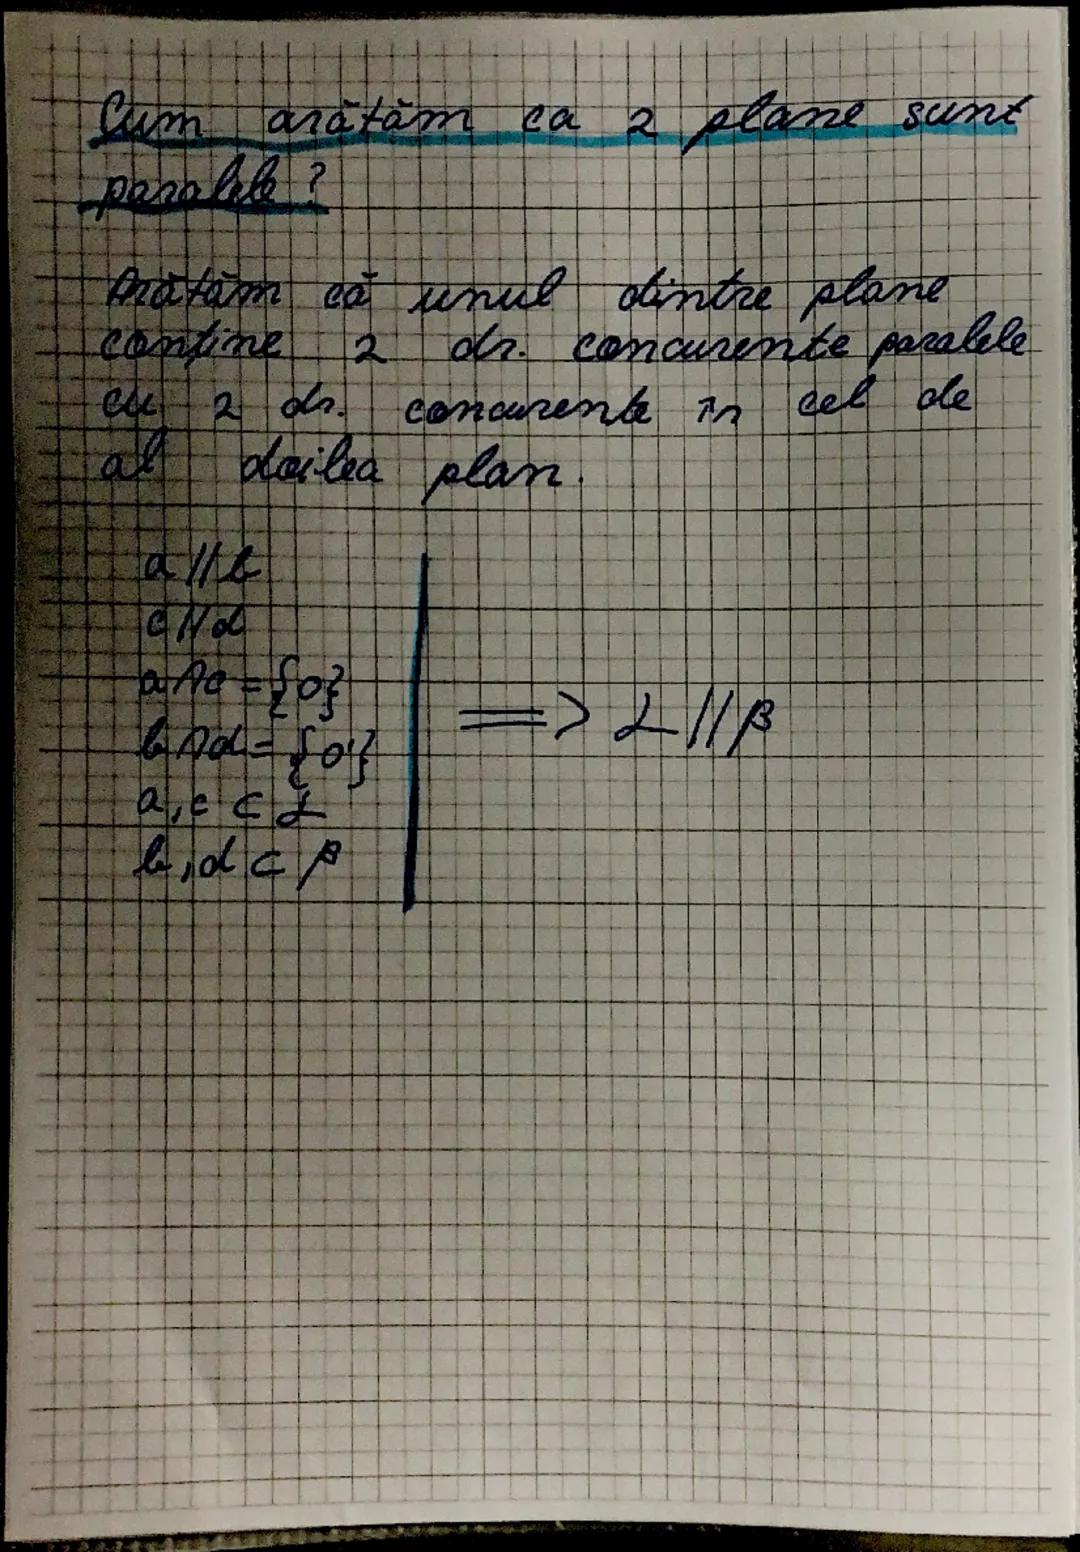 Cum arătăm ca 2 plane sunt
paralele?
Arătăm că unul dintre plane
conține 2 dr. concurente paralele
cu 2 dr. concurente în cel de
al doilea plan.
a // b
c // d
a ∩ c = {O}
b ∩ d = {O'}
a, c ⊂ α
b, d ⊂ β
=> α // β